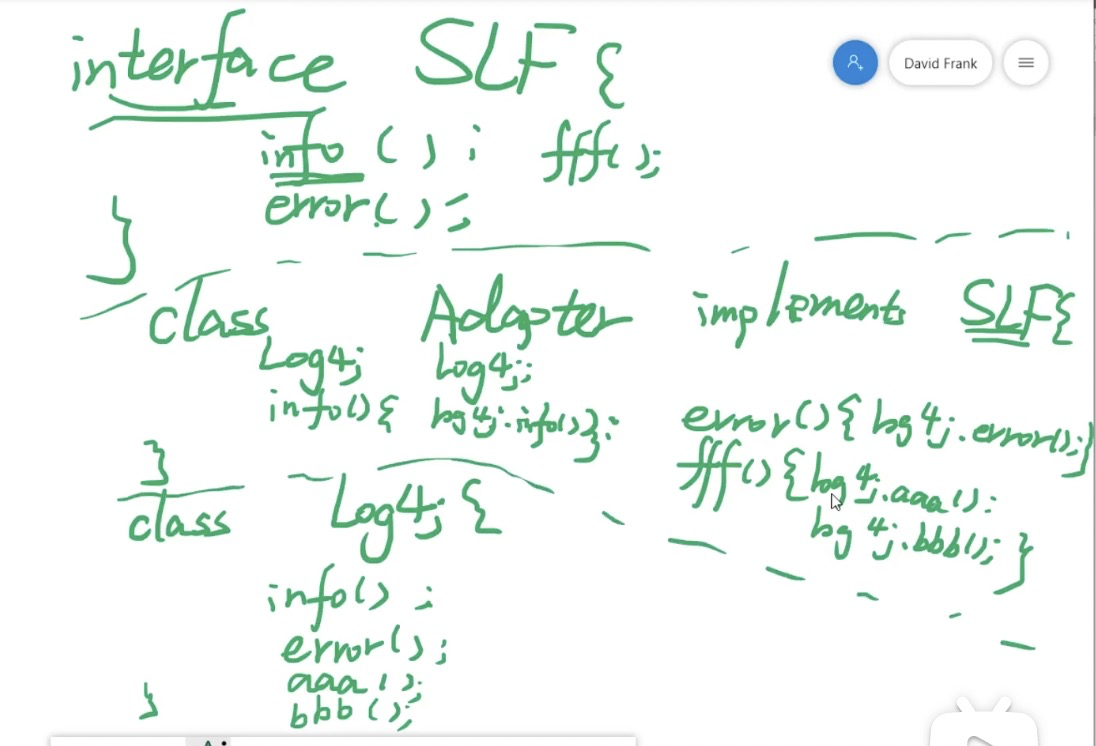 interface SLF {
David Frank
info(); fff();
error();
}
class Adapter implements SLF{
Log4j log4j;
info(){ log4j.info()}; error(){ log4j.error();}
fff(){log4j.aaa();
log4j.bbb(); }
}
class Log4j {
info();
error();
aaa();
bbb();
}